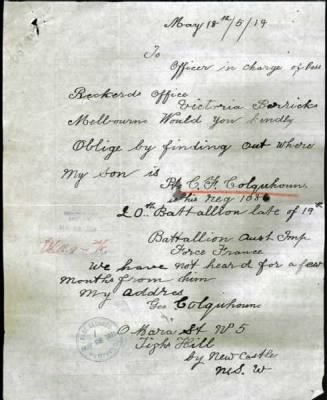 May 18th/5/19
To
Officer in charge of Base
Beckerds Office
Victoria Berricks
Melbourne Would you kindly
Oblige by finding out where
My Son is
Pte C. F. Colquhoun
is his Reg 1086
20th Battallion late of 19th
Battallion Aust Imp
Force France
We have not heard for a few
Months from him
My Addres
Geo Colquhoun
O Mara St No 5
Tighs Hill
by New Castle
N.S.W